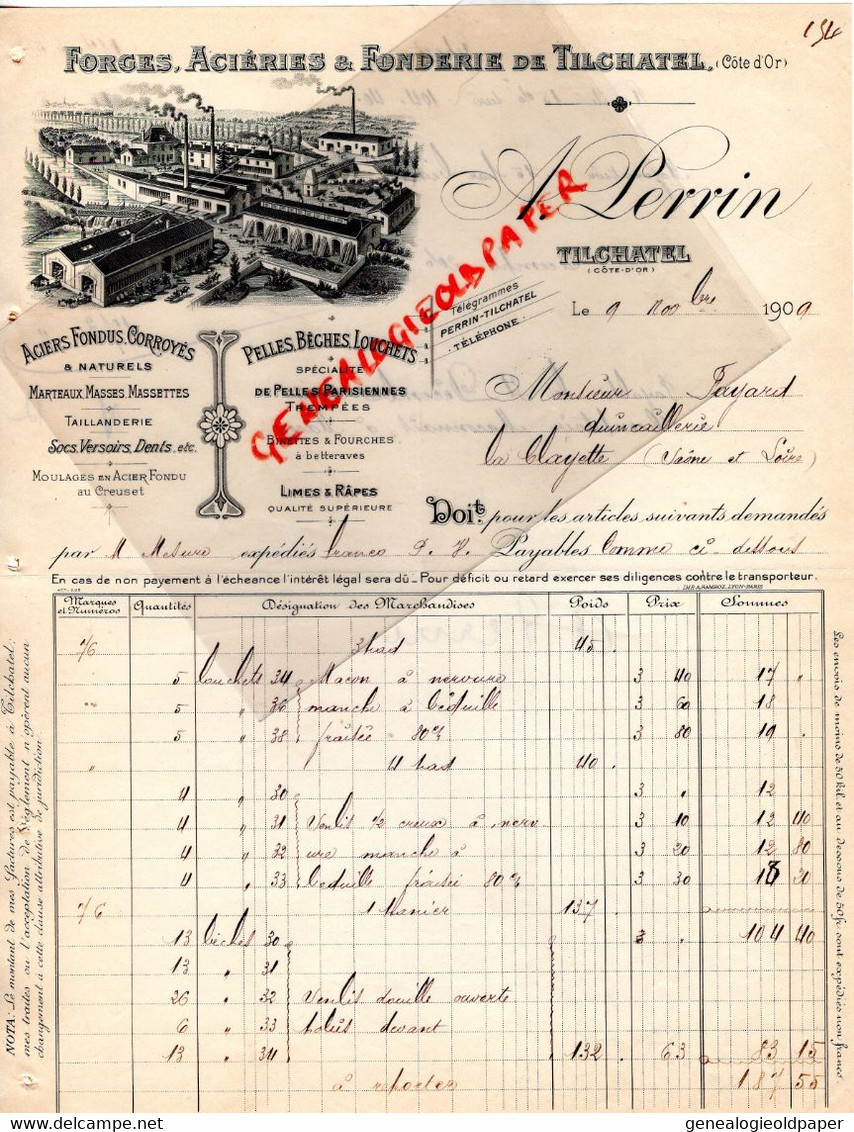 154
FORGES, ACIÉRIES & FONDERIE DE TILCHATEL, (Côte d'Or)
A. Perrin
TILCHATEL
(CÔTE-D'OR)
Télégrammes
PERRIN-TILCHATEL
TÉLÉPHONE
LE 9 Novbre 1909
ACIERS FONDUS, CORROYÉS
& NATURELS
MARTEAUX, MASSES, MASSETTES
TAILLANDERIE
SOCS, VERSOIRS, DENTS, etc.
MOULAGES EN ACIER FONDU
au Creuset
PELLES, BÊCHES, LOUCHETS
SPÉCIALITÉ
DE PELLES PARISIENNES
TREMPÉES
BINETTES & FOURCHES
à betteraves
LIMES & RÂPES
QUALITÉ SUPÉRIEURE
GENEALOGIEOLDPAPER
Monsieur Fayard
quincaillerie
La Clayette (Saône et Loire)
Doit, pour les articles suivants demandés
par M Mesure expédiés franco P. V. Payables Comme ci-dessous
En cas de non payement à l'écheance l'intérêt légal sera dû _ Pour déficit ou retard exercer ses diligences contre le transporteur.
IMP. A. RAMBOZ, LYON-PARIS
Marques et Numéros Quantités Désignation des Marchandises Poids Prix Sommes
76 45
5 Louchets 34 Macon à nervure 3 40 17 "
" 5 " 36 manche à béquille 3 60 18
5 " 38 fraitée 80% 3 80 19 .
" 40
4 " 30 3 " 12
4 " 31 1/2 creux à nerv 3 10 12 40
4 " 32 ure manche à 3 20 12 80
4 " 33 béquille 80% 3 30 13 20
76 1 Panier 137
13 bêches 30 104 40
13 " 31
26 " 32 douille ouverte
6 " 33 devant
13 " 34 132 63 83 15
à reporter 187 55
NOTA: Le montant de mes factures est payable à Tilchatel;
mes traites ou l'acceptation de Règlement n'opèrent aucun
changement à cette clause attributive de juridiction.
Les envois de moins de 30 kil. et au dessous de 50 fr. sont expédiés non franco
genealogieoldpaper